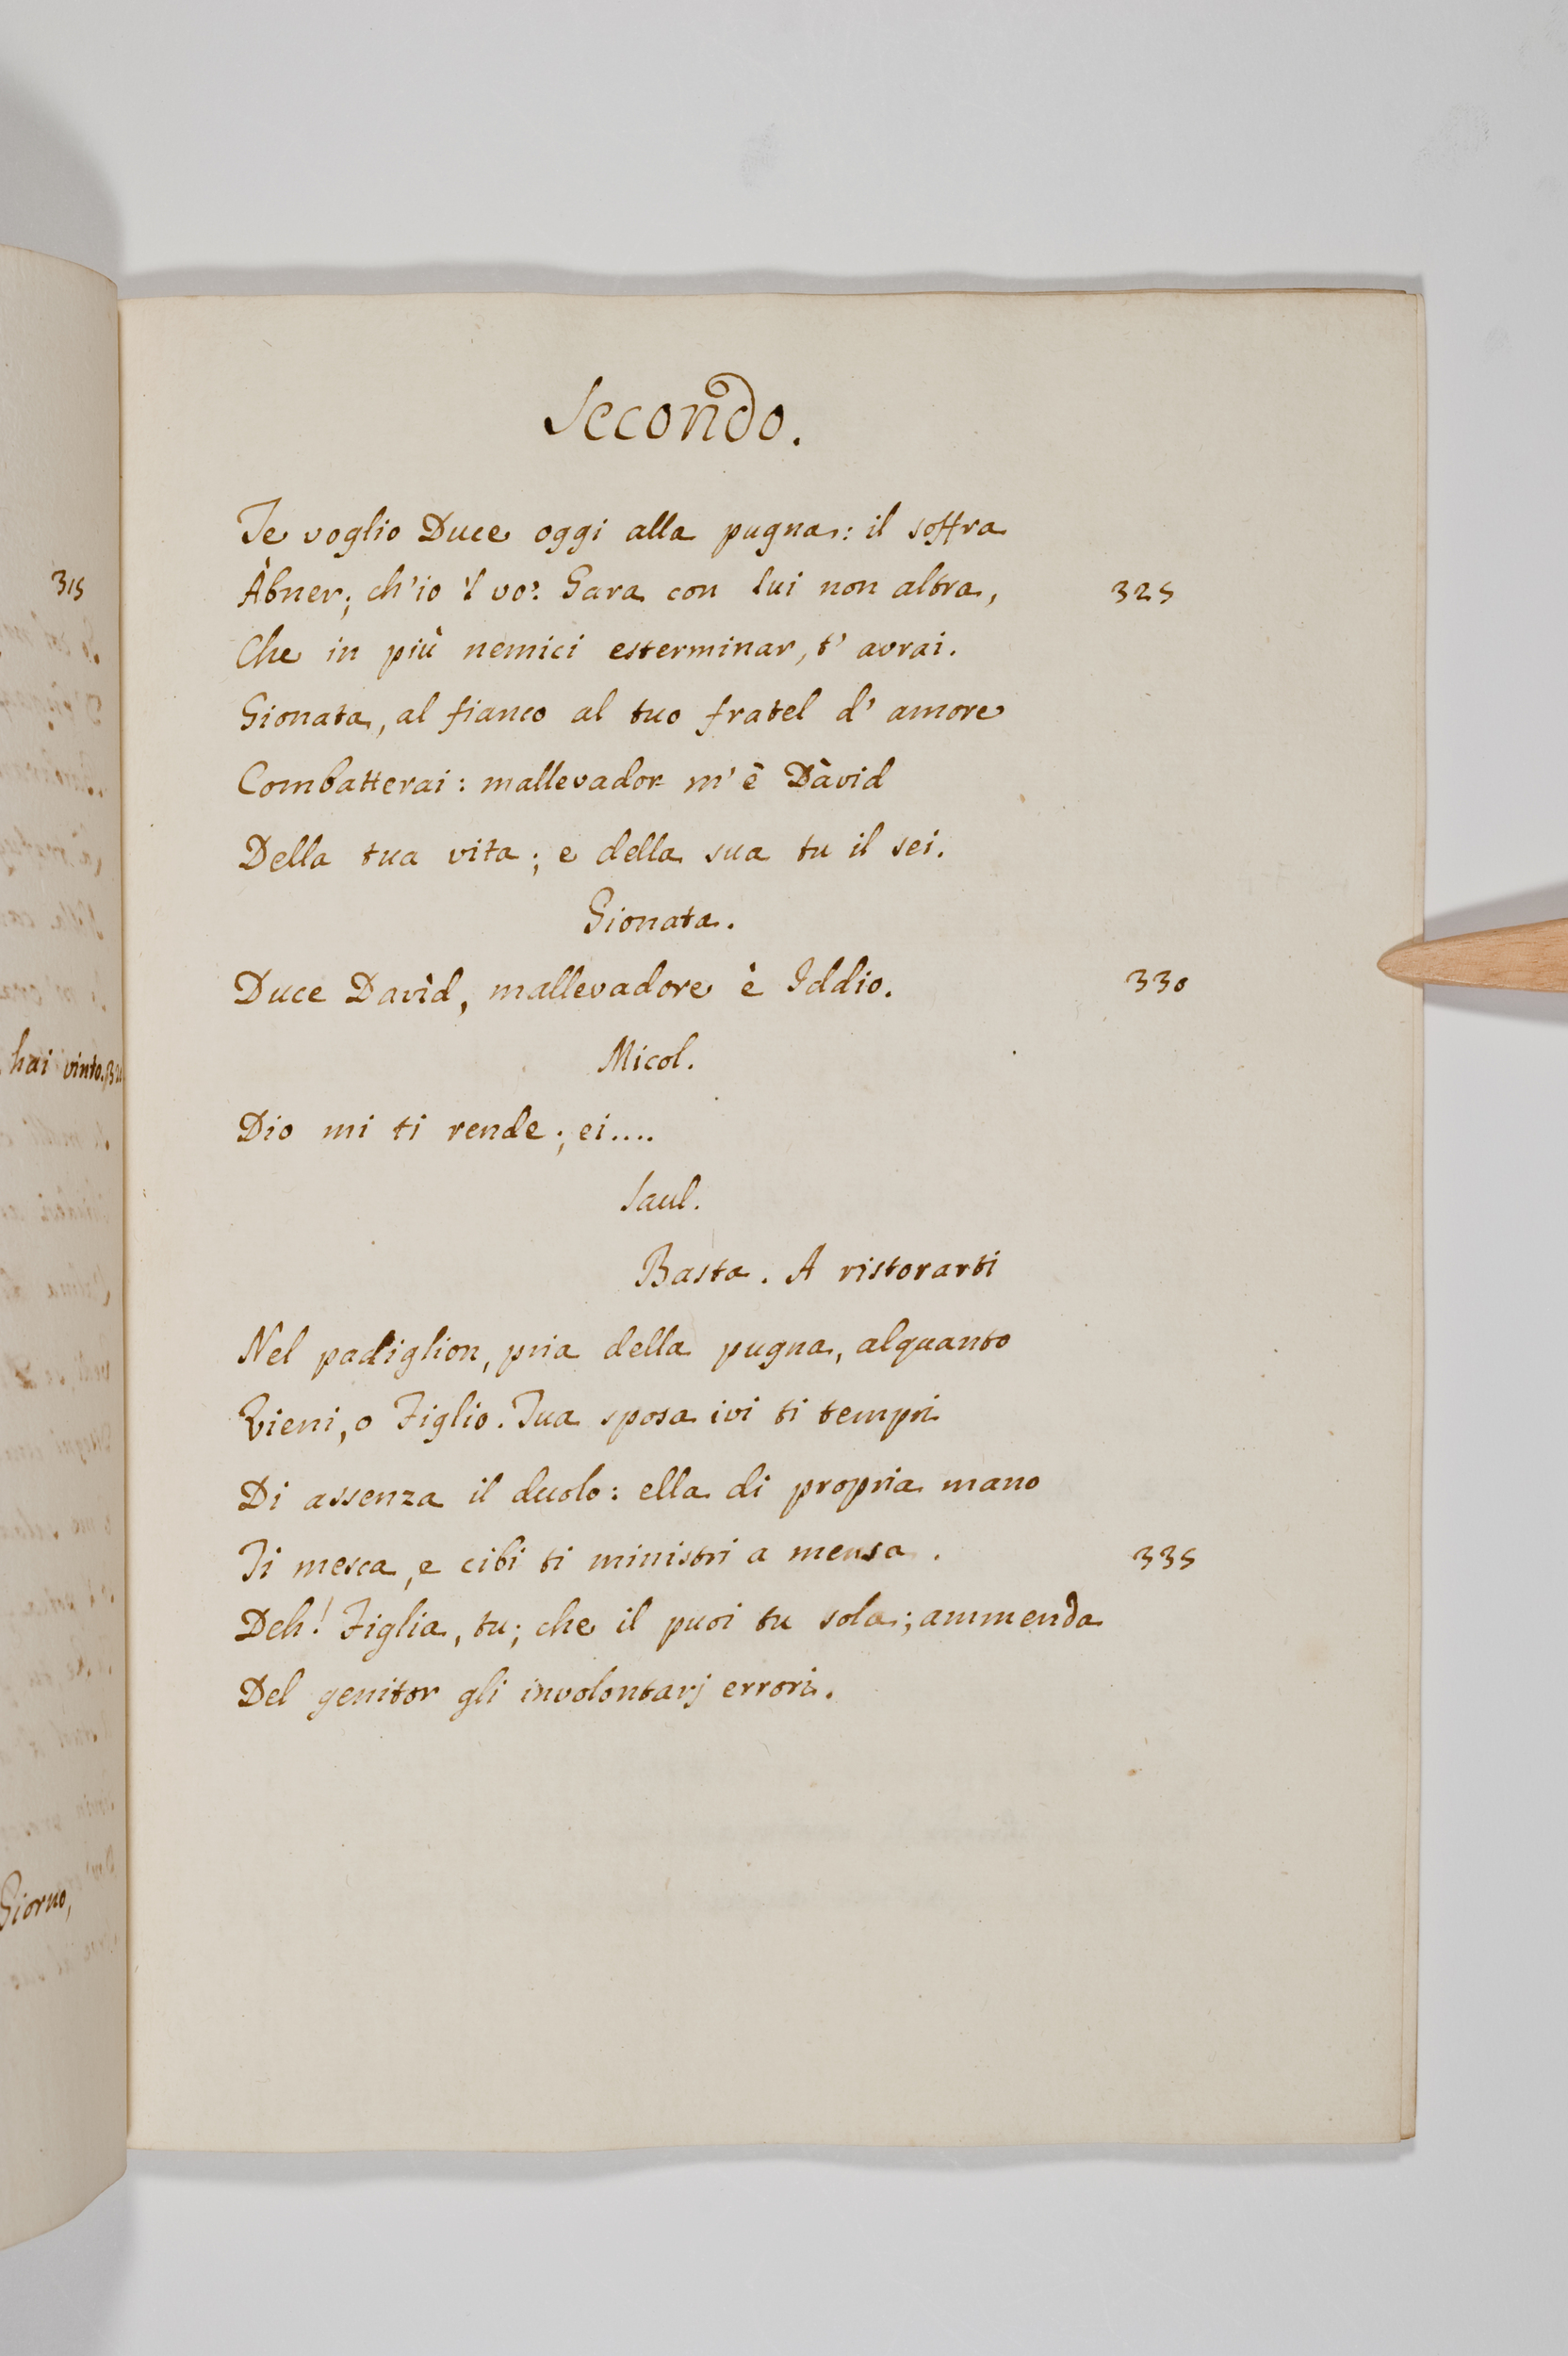 315
hai vinto. 320
Giorno,
Secondo.
Te voglio Duce oggi alla pugna: il soffra
Àbner; ch'io 'l vo'. Gara con lui non altra, 325
Che in più nemici esterminar, t' avrai.
Gionata, al fianco al tuo fratel d' amore
Combatterai: mallevador m' è Dàvid
Della tua vita; e della sua tu il sei.
Gionata.
Duce Davìd, mallevadore è Iddio. 330
Micol.
Dio mi ti rende; ei....
Saul.
Basta. A ristorarti
Nel padiglion, pria della pugna, alquanto
Vieni, o Figlio. Tua sposa ivi ti tempri
Di assenza il duolo: ella di propria mano
Ti mesca, e cibi ti ministri a mensa. 335
Deh! Figlia, tu; che il puoi tu sola; ammenda
Del genitor gli involontarj errori.